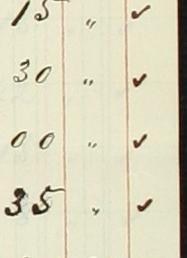 15 " ✓
30 " ✓
00 " ✓
35 " ✓